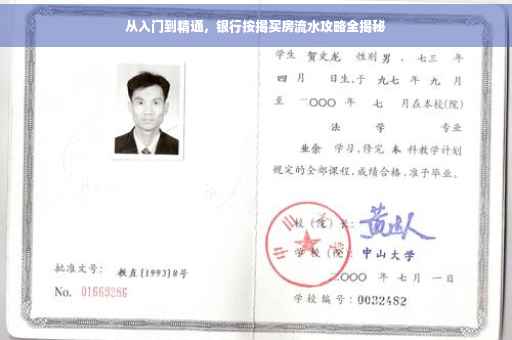 从入门到精通，银行按揭买房流水攻略全揭秘
学生 贺文龙 性别 男，七三 年
四 月 日生，于 九七 年 九 月
至 二〇〇〇 年 七 月在本校(院)
法 学 专业
业余 学习，修完 本 科教学计划
规定的全部课程，成绩合格，准予毕业。
校（院）长：
学校（院）：中山大学
二〇〇〇 年 七 月 一 日
学校编号：0032482
批准文号：教直[1993]8号
No. 01669286